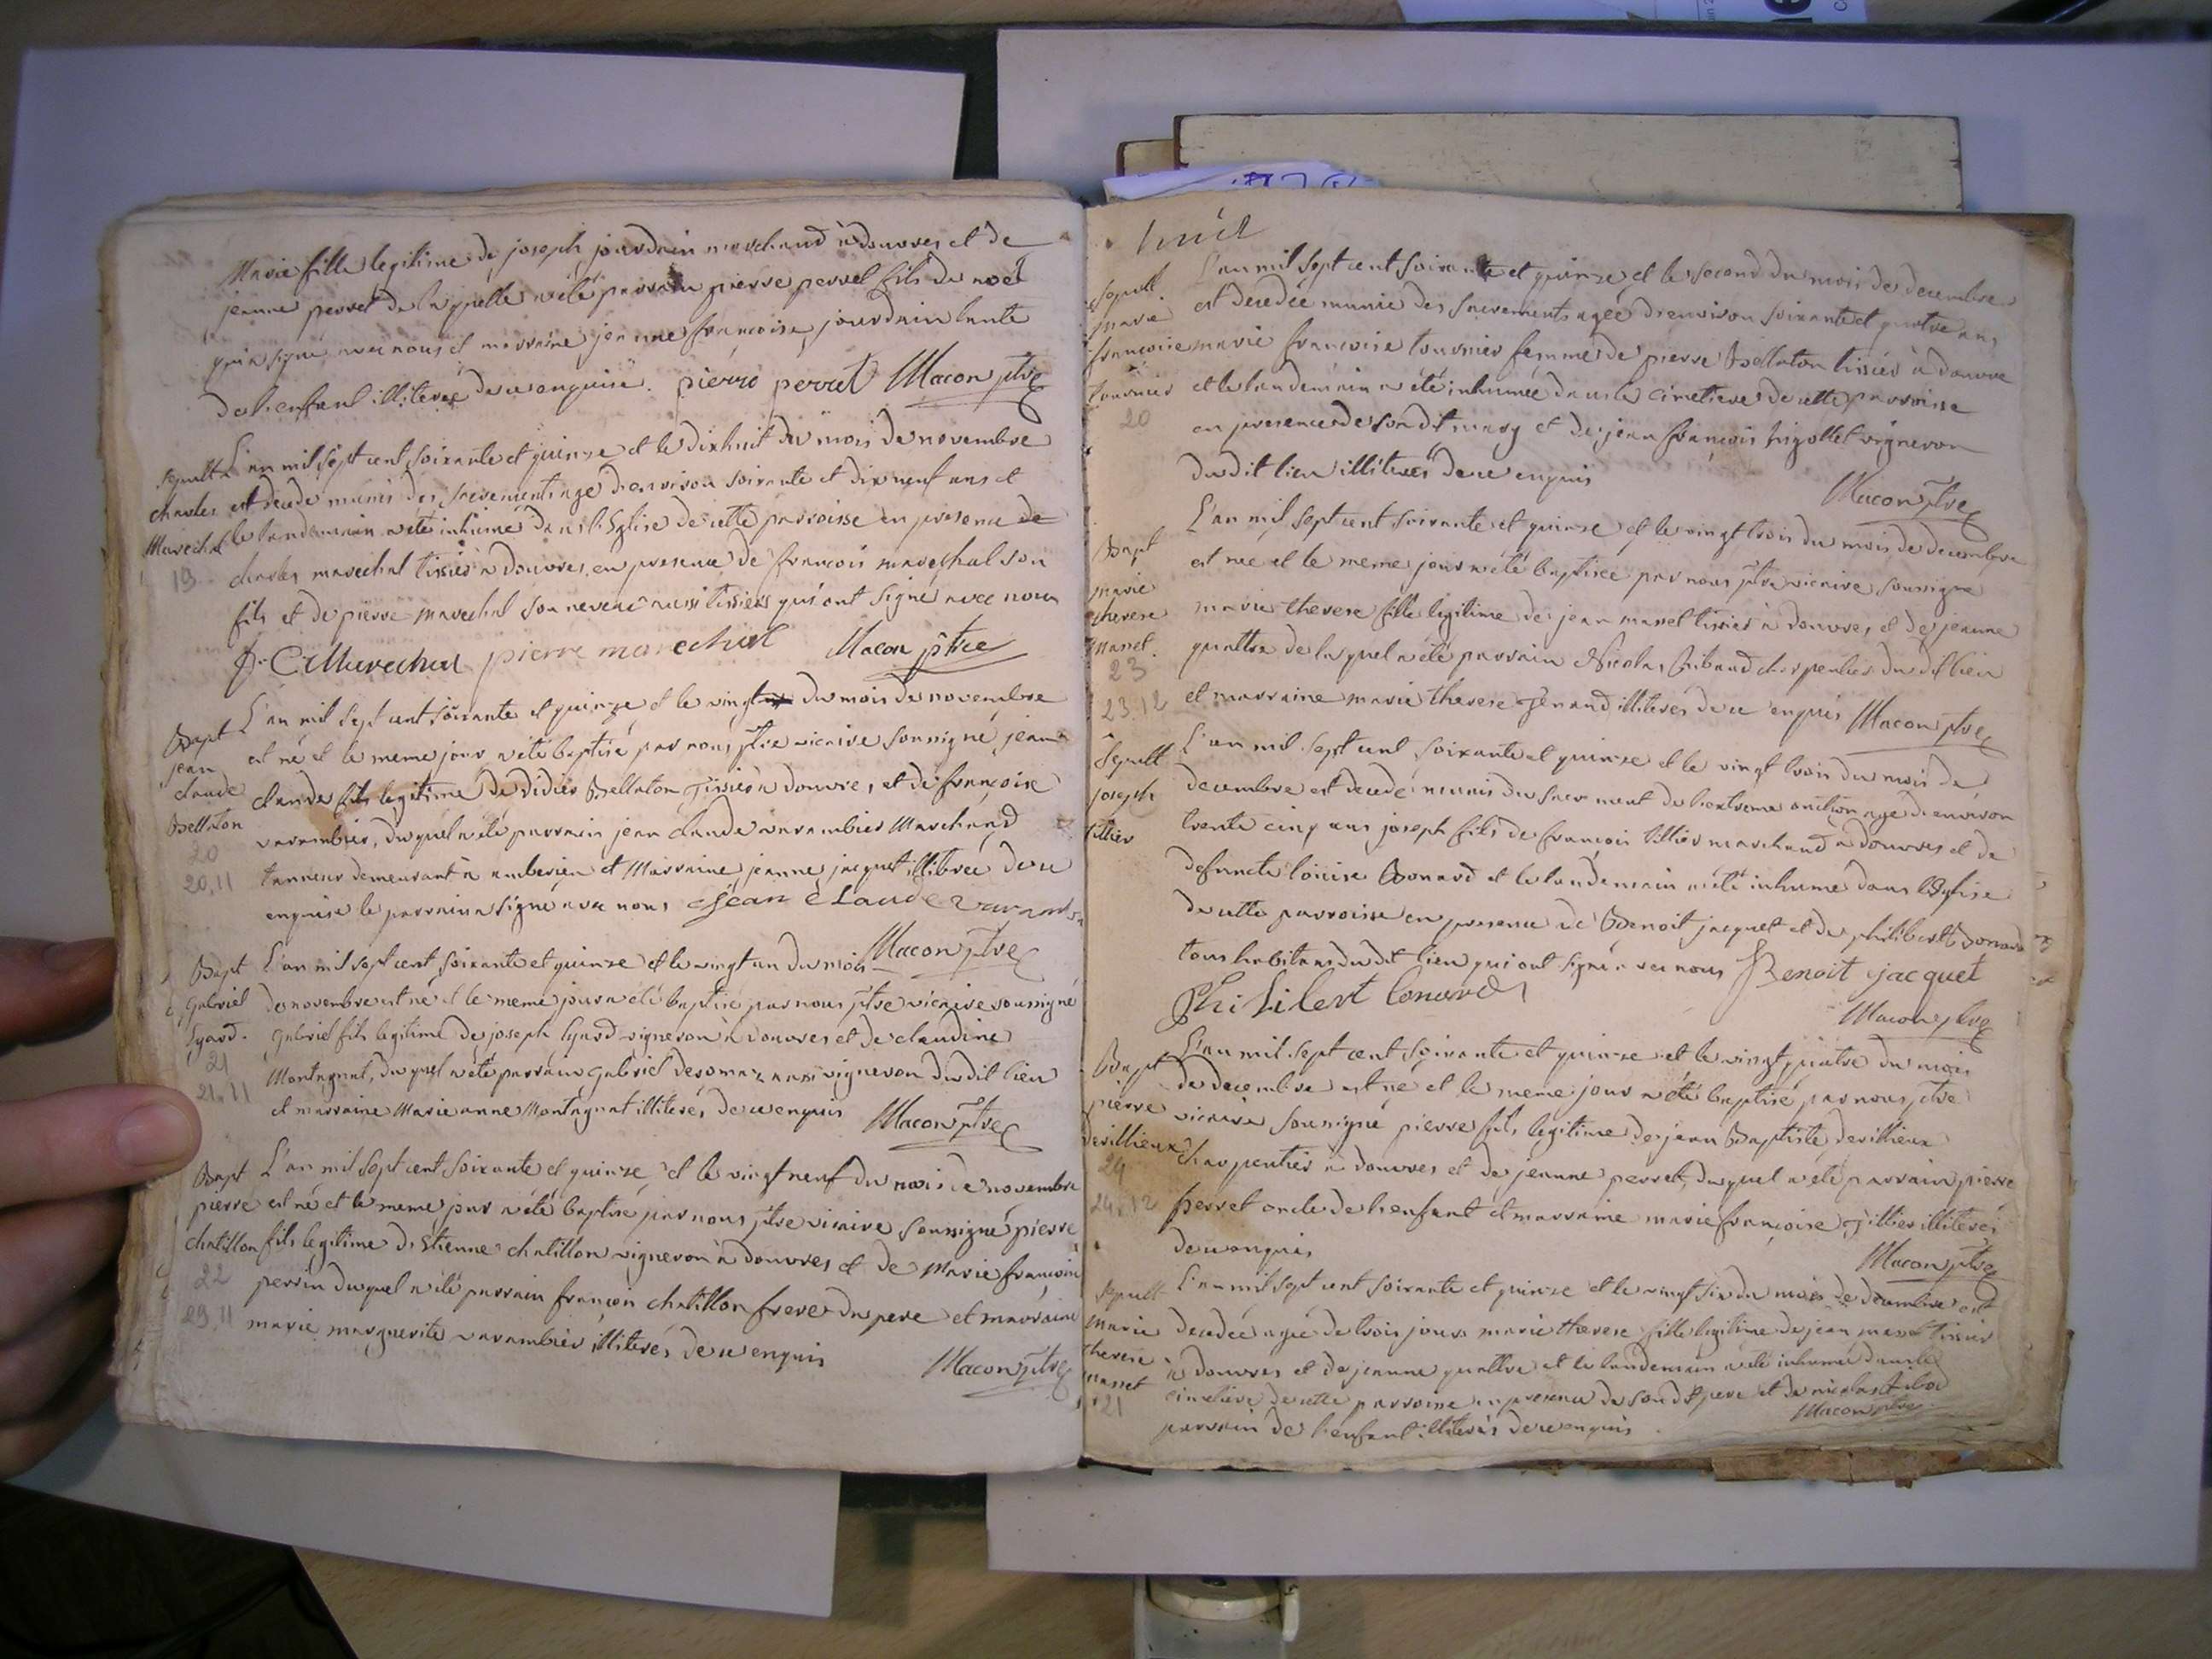 Marie fille legitime de joseph jourdain marchand à douvres et de
jeanne perret de laquelle a été parrain pierre perret fils de noel
qui a signé avec nous et marraine jeanne françoise jourdain tante
de l'enfant illiterée de ce enquise. pierre perret Macon ptre
Sepult L'an mil sept cent soixante et quinze et le dixhuit du mois de novembre
charles est decedé munis des sacrements agé d'environ soixante et dix neuf ans et
Marechal le landemain a été inhumé dans l'Eglise de cette parroisse en presence de
19 charles marechal tissier à douvres, en presence de françois mareschal son
fils et de pierre marechal son neveu aussi tissiers qui ont signé avec nous
f. C. Marechal pierre marechal Macon ptre
Bapt L'an mil sept cent soixante et quinze et le vingt du mois de novembre
jean est né et le meme jour a été baptisé par nous ptre vicaire soussigné jean
claude claude fils legitime de didier Bellaton Tissier à douvres, et de françoise
Bellaton varambier, duquel a été parrain jean claude varambier Marchand
20 tanneur demeurant à amberieu et Marraine jeanne jacquet illiterée de ce
20,11 enquise le parrain a signé avec nous Jean Claude Varambier
Macon ptre
Bapt L'an mil sept cent soixante et quinze et le vingt un du mois
Gabriel de novembre est né et le meme jour a été baptisé par nous ptre vicaire soussigné
Lyard. Gabriel fils legitime de joseph lyard vigneron à douvres et de claudine
21 Montagnat, duquel a été parrain Gabriel desomaz aussi vigneron dudit lieu
21.11 et marraine Marie anne Montagnat illiterés de ce enquis Macon ptre
Bapt L'an mil sept cent soixante et quinze et le vingt neuf du mois de novembre
pierre est né et le meme jour a été baptisé par nous ptre vicaire soussigné pierre
chatillon fils legitime d'Etienne chatillon vigneron à douvres et de Marie françoise
22 perrin duquel a été parrain françois chatillon frere du pere et marraine
29.11 marie marguerite varambier illiterés de ce enquis
Macon ptre
huit
Sepult. L'an mil sept cent soixante et quinze et le second du mois de decembre
Marie est decedée munie des sacrements agée d'environ soixante et quatre ans
françoise marie françoise tournier femme de pierre Bellaton tissier à douvre
tournier et le landemain a été inhumée dans le cimetiere de cette parroisse
20 en presence de son dt mary et de jean françois higollet vigneron
dudit lieu illiterés de ce enquis
Macon ptre
Bapt L'an mil sept cent soixante et quinze et le vingt trois du mois de decembre
marie est née et le meme jour a été baptisée par nous ptre vicaire soussigné
therese marie therese fille legitime de jean masset tissier à douvres, et de jeanne
masset. quattre de laquel a été parrain Nicolas Tibaud charpentier dudit lieu
23
23.12 et marraine marie therese Tenand illiterés de ce enquis Macon ptre
Sepult L'an mil sept cent soixante et quinze et le vingt trois du mois de
joseph decembre est decedé munis du sacrement de l'extreme onction agé d'environ
tillier trente cinq ans joseph fils de françois tillier marchand à douvres et de
defuncte louise Bonard et le landemain a été inhumé dans l'Eglise
de cette parroisse en presence de Benoit jacquet et de philibert Bonard
tous habitans dudit lieu qui ont signé avec nous Benoit jacquet
Philibert bonard
Macon ptre
Bapt L'an mil sept cent soixante et quinze et le vingt quatre du mois
pierre de decembre est né et le meme jour a été baptisé par nous ptre
devillieux vicaire soussigné pierre fils legitime de jean Baptiste devillieux
24 charpentier à douvres et de jeanne perret, duquel a été parrain pierre
24.12 perret oncle de l'enfant et marraine marie françoise Tillier illiterés
de ce enquis
Macon ptre
Sepult L'an mil sept cent soixante et quinze et le vingt six du mois de decembre est
Marie decedée agée de trois jours marie therese fille legitime de jean masset tissier
therese à douvres et de jeanne quattre et le landemain a été inhumée dans le
masset cimetiere de cette parroisse en presence de son dt pere et de nicolas Tibod
21 parrain de l'enfant illiterés de ce enquis
Macon ptre